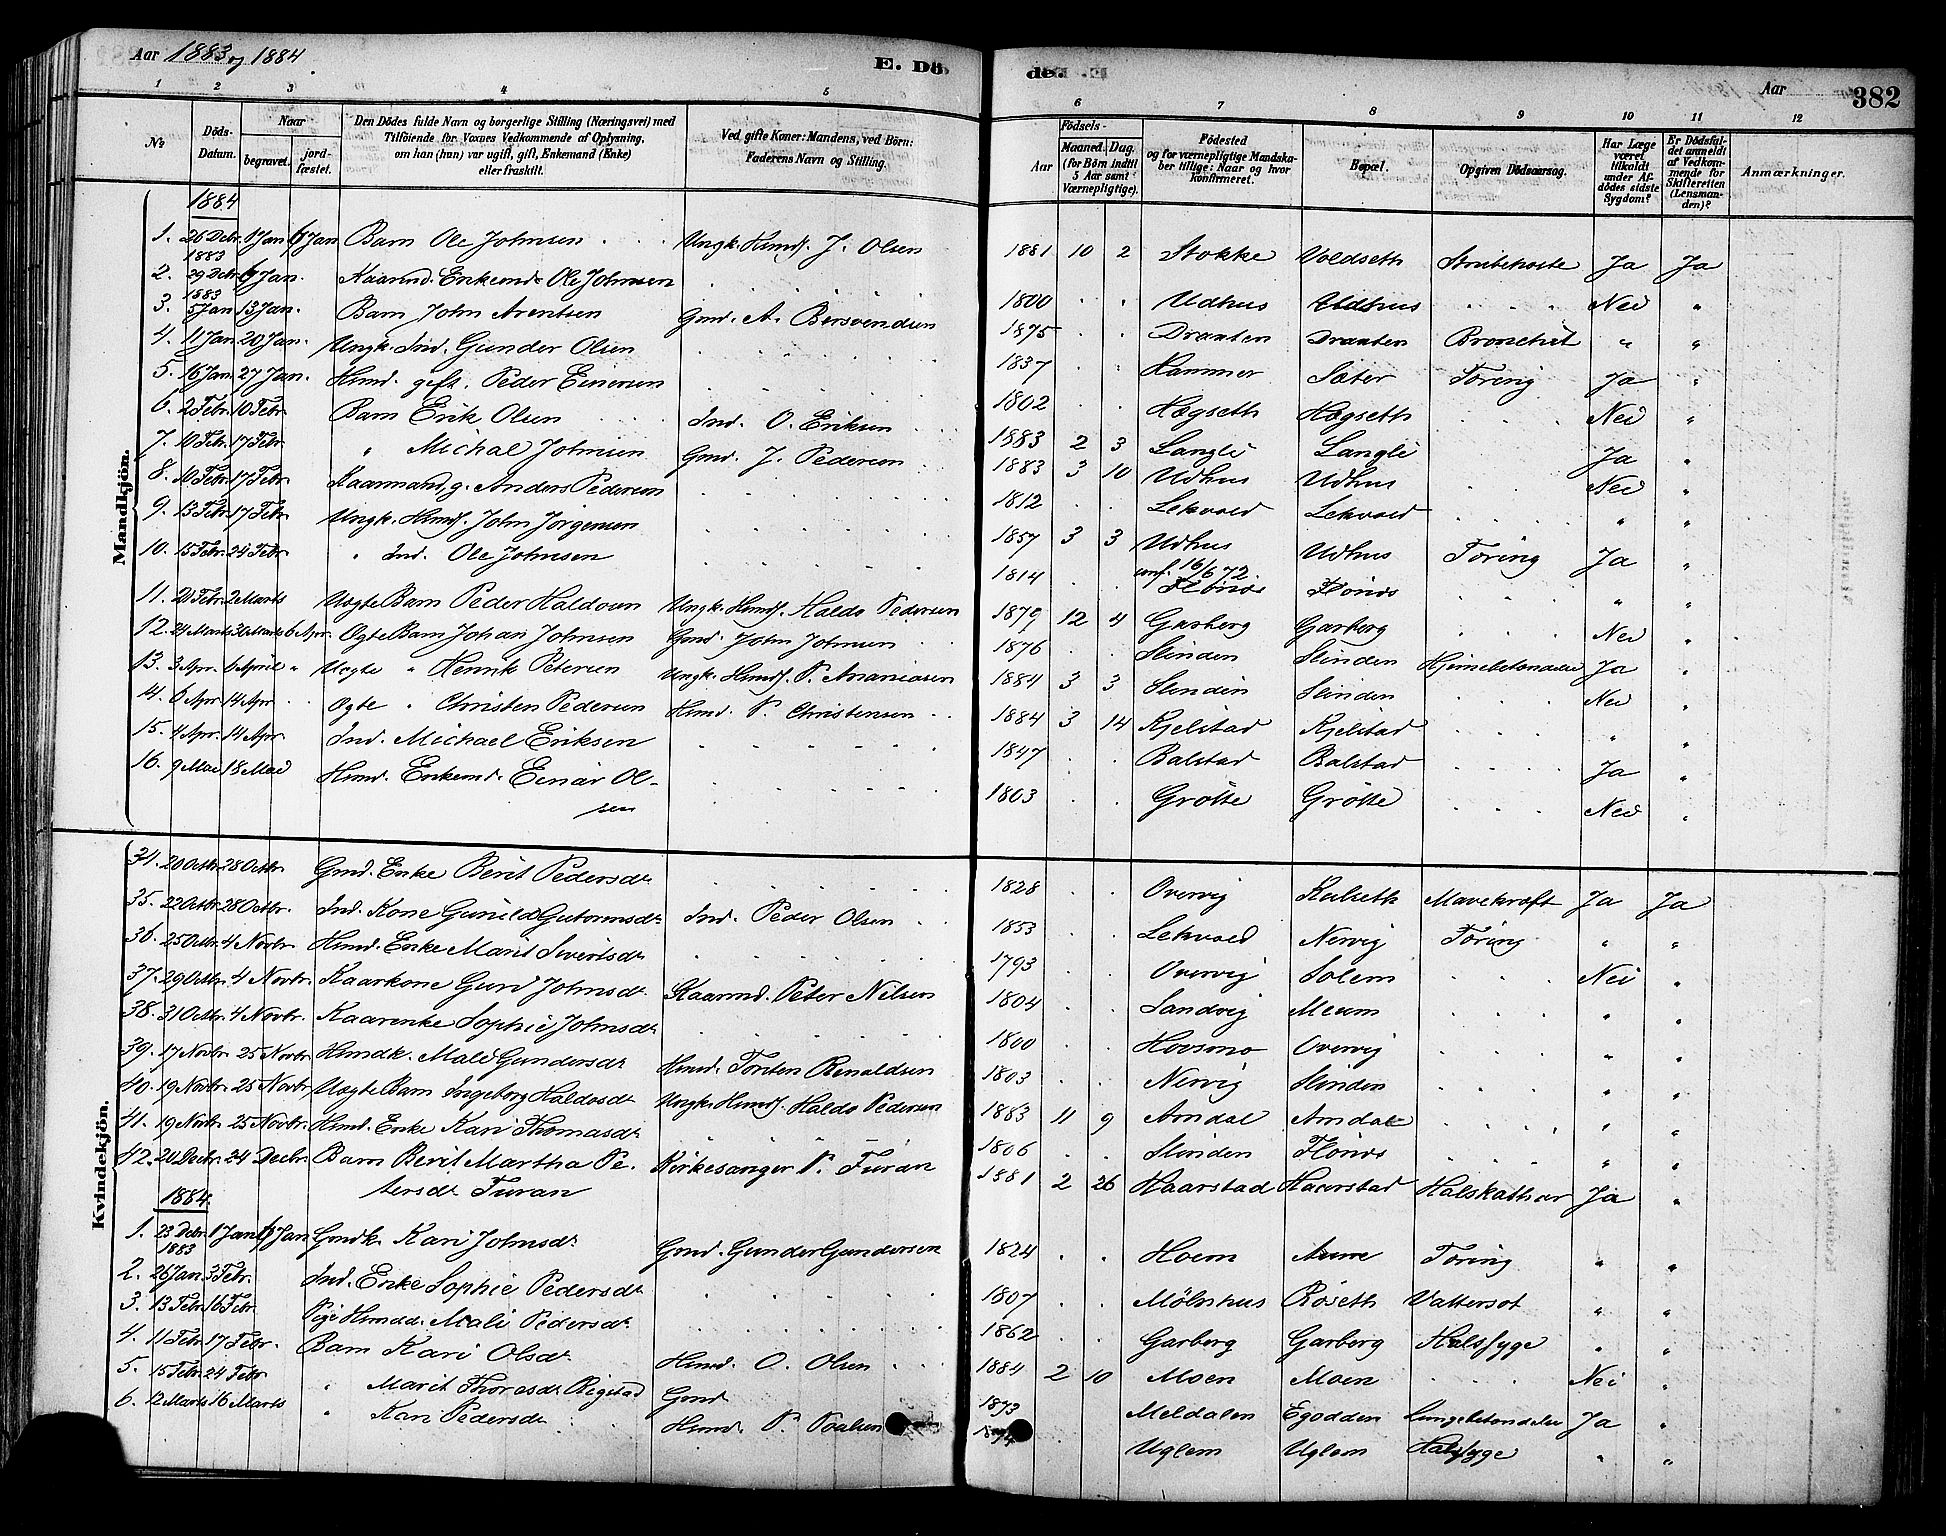 Aar 1883 og 1884.
E. Dö-
de.
Aar
382
1 2 3 4 5 6 7 8 9 10 11 12
No
Döds-Datum.
Naar
begravet.
jordfæstet.
Den Dödes fulde Navn og borgerlige Stilling (Næringsvei) med
Tilföiende for Voxnes Vedkommende af Oplysning,
om han (hun) var ugift, gift, Enkemand (Enke)
eller fraskilt.
Ved gifte Koner: Mandens, ved Börn:
Faderens Navn og Stilling.
Födsels-
Aar
Maaned. Dag.
(for Börn indtil
5 Aar samt
Værnepligtige).
Födested
og for værnepligtige Mandska-
ber tillige: Naar og hvor
konfirmeret.
Bopæl.
Opgiven Dödsaarsag.
Har Læge
været
tilkaldt
under Af-
dödes sidste
Sygdom?
Er Dödsfal-
det anmeldt
af Vedkom-
mende for
Skifteretten
(Lensman-
den)?
Anmærkninger.
Mandkjön.
1884
1. 26 Decbr. 1883 1 Jan 6 Jan Barn Ole Johnsen Ungk. Husmds. J. Olsen 1881 10 2 Stokke Voldseth Strubehoste Ja Ja
2. 29 Decbr. 1883 6 Jan. Kaarmd. Enkemd. Ole Johnsen 1800 Udhus Udhus Nei "
3. 5 Jan 13 Jan. Barn John Arentsen Gmd. A. Bersvendsen 1875 Draxten Draxten Bronchit " "
4. 11 Jan 20 Jan. Ungk. Ind. Gunder Olsen 1837 Hammer Sæter Tæring Ja "
5. 16 Jan. 27 Jan. Husmd. gift. Peder Einersen 1802 Hægseth Hægseth Nei "
6. 2 Febr. 10 Febr. Barn Erik Olsen Ind. O. Eriksen 1883 2 3 Langli Langli Ja "
7. 10 Febr. 17 Febr " Michal Johnsen Gmd. J. Pedersen 1883 3 10 Udhus Udhus Nei "
8. 10 Febr. 17 Febr. Kaarmand, g. Anders Pedersen 1812 Lekvold Lekvold " "
9. 13 Febr. 17 Febr. Ungk. Husmds. John Jörgensen 1857 3 3 Udhus conf. 16/6 72 Udhus Tæring Ja "
10. 15 Febr. 24 Febr. " Ind. Ole Johnsen 1814 Flönæs Flönæs " "
11. 21 Febr. 2 Marts Uægte Barn Peder Haldosen Ungk. Husmds. Haldo Pedersen 1879 12 4 Garberg Garberg Nei "
12. 24 Marts 30 Marts 6 Apr. Ægte Barn Johan Johnsen Gmd. John Johnsen 1876 Slinden Slinden Hjernebetændelse Ja "
13. 3 Apr. 6 April " Uægte " Henrik Petersen Ungk. Husmds. P. Ananiasen 1884 3 3 Slinden Slinden Nei "
14. 6 Apr 14 Apr Ægte " Christen Pedersen Husmd. P. Christensen 1884 3 14 Kjelstad Kjelstad " "
15. 4 Apr. 14 Apr. Ind. Michael Eriksen 1847 Balstad Balstad Ja "
16. 9 Mai 18 Mai Husmd. Enkemd. Einar Ol-
sen 1803 Grötte Grötte Nei "
Kvindekjön.
34. 20 Octbr. 28 Octbr. Gmd. Enke Berit Pedersdt. 1828 Overvig Kulseth Mavekræft Ja Ja
35. 22 Octbr. 28 Octbr. Ind. Kone Gunild Guttormsdt. Ind. Peder Olsen 1853 Lekvold Nervig Tæring " "
36. 25 Octbr. 4 Novbr. Husmd. Enke Marit Sivertsdt. 1793 Overvig Solem Nei "
37. 29 Octbr. 4 Novbr. Kaarkone Guru Johnsdt. Kaarmd. Peter Nilsen 1804 Sandvig Meum " "
38. 31 Octbr. 4 Novbr. Kaarenke Sophie Johnsdt. 1800 Hovsmo Overvig " "
39. 17 Novbr. 25 Novbr. Husmdk. Mali Gundersdt. Husmd. Torsten Renaldsen 1803 Nervig Slinden " "
40. 19 Novbr. 25 Novbr. Uægte Barn Ingeborg Haldosdt. Ungk. Husmds. Haldo Pedersen 1883 11 9 Amdal Amdal " "
41. 19 Novbr. 25 Novbr. Husmd. Enke Kari Thomasdt. 1806 Slinden Flönæs " "
42. 20 Decbr. 24 Decbr. Barn Berit Martha Pe-
tersdt. Furan Kirkesanger P. Furan 1881 2 26 Haarstad Haarstad Halskathar Ja "
1884.
1. 23 Decbr. 1883 1 Jan 6 Jan Gmdk. Kari Johnsdt. Gmd. Gunder Gundersen 1824 Hoem Aune Tæring " "
2. 26 Jan. 3 Febr. Ind. Enke Sophie Pedersdt. 1807 Mölnhus Röseth Vattersot " "
3. 13 Febr. 16 Febr. Pige Husmdd. Mali Pedersdt. 1862 Garberg Garberg Halssyge " "
4. 11 Febr. 17 Febr. Barn Kari Olsdt. Husmd. O. Olsen 1884 2 10 Moen Moen Nei "
5. 15 Febr. 24 Febr " Marit Thoresdt. Rigstad Gmd 1873 Meldalen Egodden Lungebetændelse Ja "
6. 12 Marts 16 Marts " Kari Pedersdt. Husmd. P. Paalsen 1874 Uglem Uglem Halssyge " "